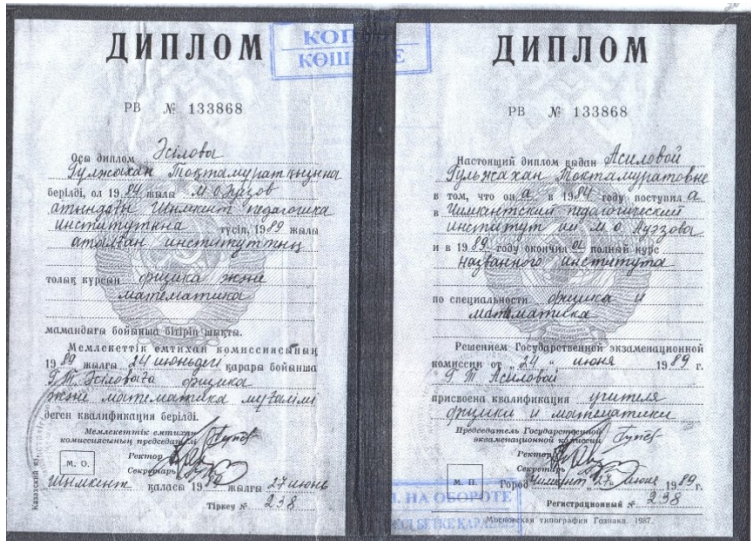 ДИПЛОМ
РВ № 133868
Осы диплом Әсілова
Гулжахан Тоқтамуратқызына
берілді, ол 1984 жылы М.О.Әуезов
атындағы Шымкент педагогика
институтына түсіп, 1989 жылы
аталған институттың
толық курсын физика және
математика
мамандығы бойынша бітіріп шықты.
Мемлекеттік емтихан комиссиясының
1989 жылғы 24 июньдегі қарары бойынша
Г.Т. Әсіловаға физика
және математика мұғалімі
деген квалификация берілді.
Мемлекеттік емтихан
комиссиясының председателі
Ректор
Секретарь
М. О.
Шымкент қаласы 1989 жылғы 27 июнь
Тіркеу № 238
КОП
КӨШ Е
ДИПЛОМ
РВ № 133868
Настоящий диплом выдан Асиловой
Гульжахан Токтамуратовне
в том, что она в 1984 году поступила
в Чимкентский педагогический
институт им М.О. Ауэзова
и в 1989 году окончила полный курс
названного института
по специальности физика и
математика
Решением Государственной экзаменационной
комиссии от „24 “ июня 1989 г.
Г.Т. Асиловой
присвоена квалификация учителя
физики и математики
Председатель Государственной
экзаменационной комиссии
Ректор
Секретарь
М. П.
Город Чимкент 27 июня 1989 г.
Регистрационный № 238
Московская типография Гознака. 1987.
НА ОБОРОТЕ